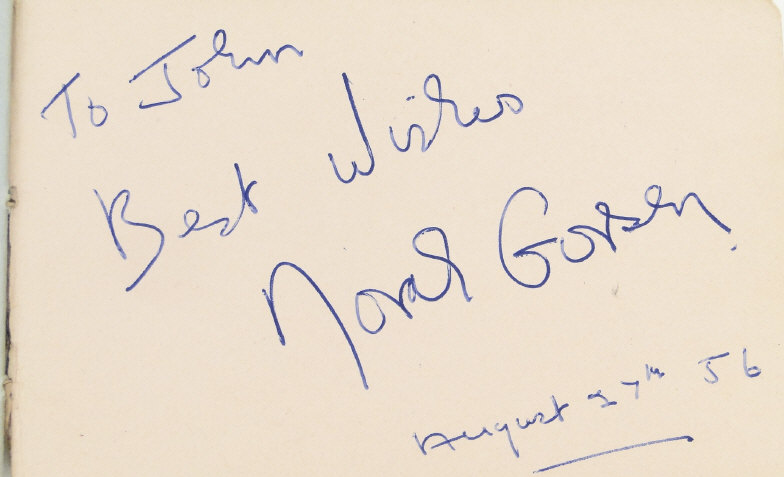 To John
Best Wishes
Norah Gorsen.
August 27th 56